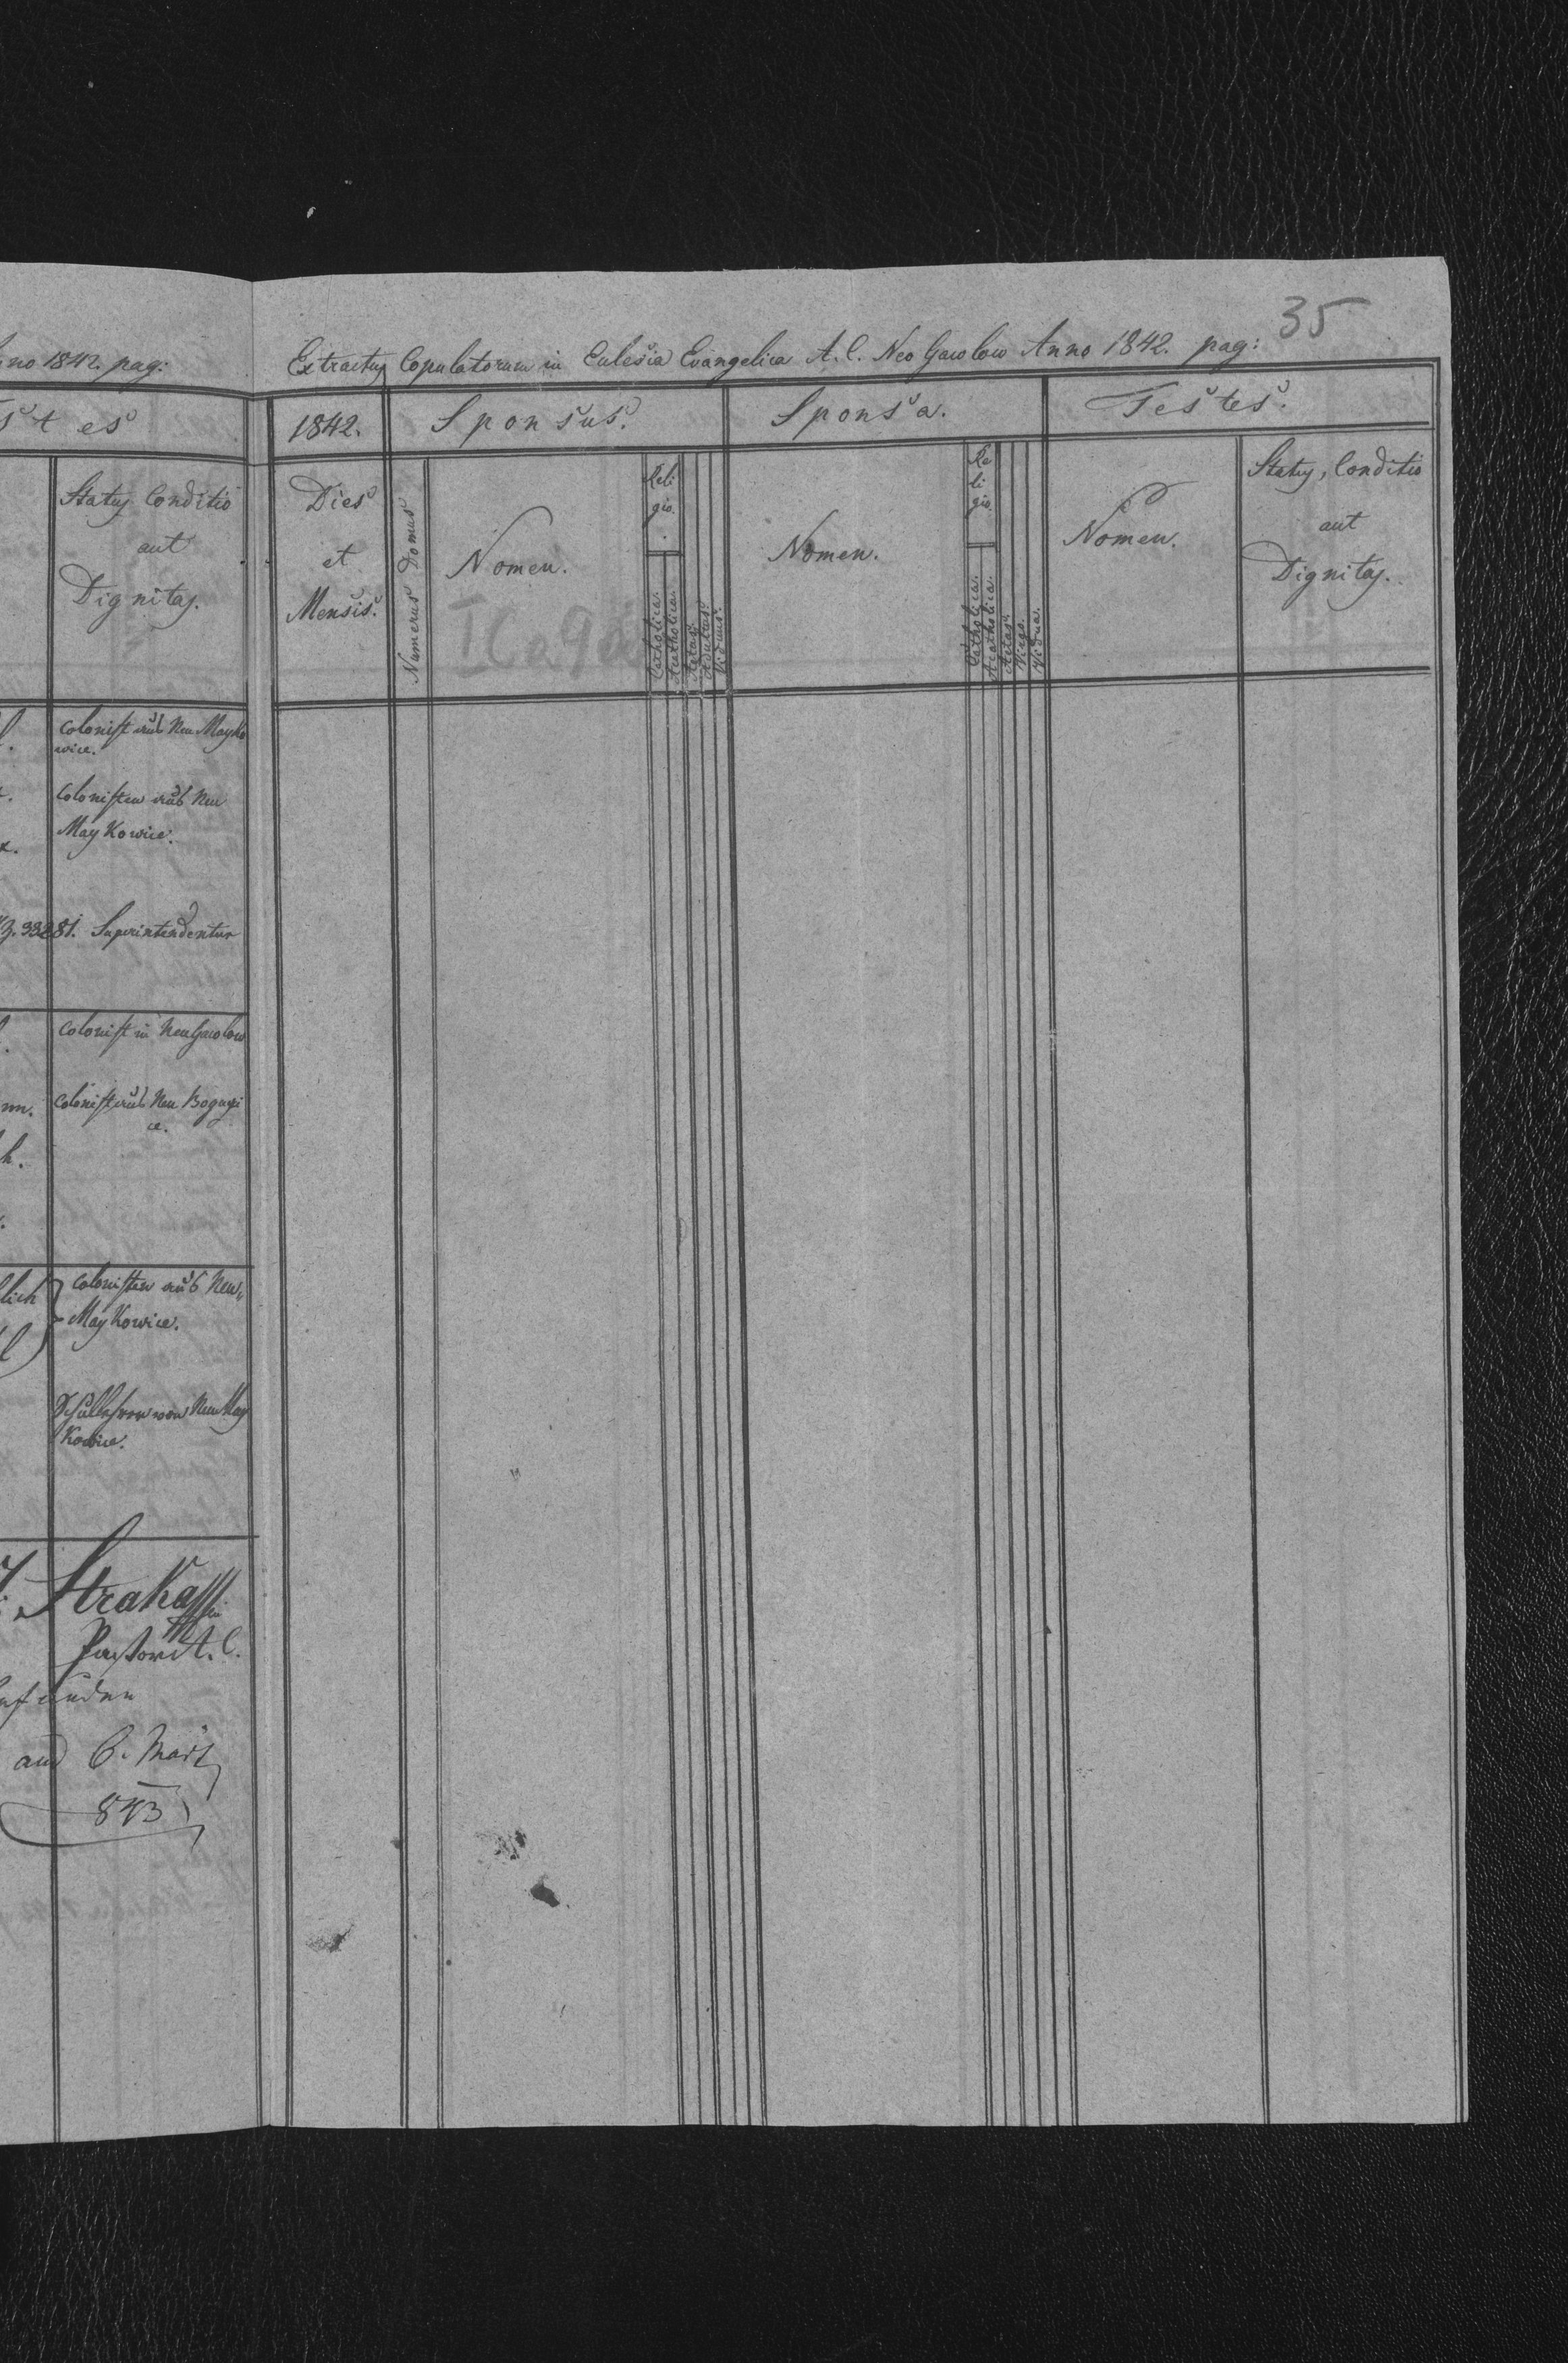 no 1842. pag:
st es
Status Conditio
aut
Dignitas.
Colonist aus Neu Mayko
wice.
Colonisten aus Neu
May Kowice.
33281. Superintendentur
Colonist in Neu Gawlow
nn. Colonist aus Neu Bogugi
ce.
h.
lich Colonisten aus Neu
May Kowice.
Schullehrer von Neu May
Kowice.
Straka
Pastor A. C.
6. März
843
35
Extractus Copulatorum in Eclesia Evangelica A. C. Neo Gawlow Anno 1842. pag:
1842. Sponsus. Sponsa. Testes.
Dies
et
Mensis.
Numerus Domus
Nomen.
ICa9a
Reli
gio.
Catholica.
Acatholica.
Aetas.
Viduus.
Nomen.
Re
li
gio
Catholica.
Acatholica.
Aetas.
Virgo.
Vidua.
Nomen.
Status, Conditio
aut
Dignitas.